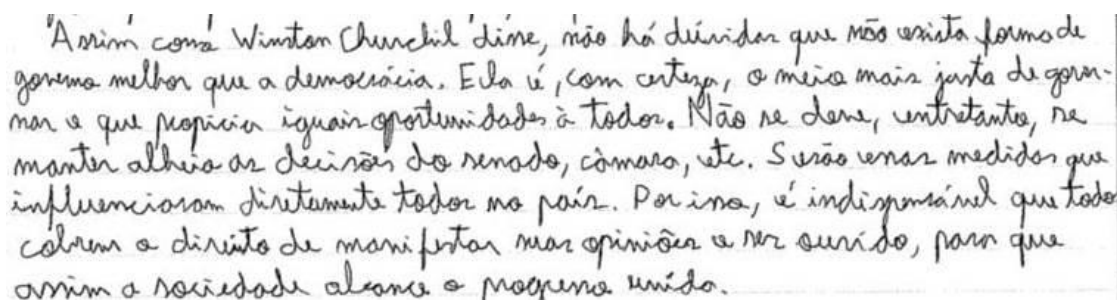 Assim como Winston Churchil disse, não há dúvidas que não exista forma de
governo melhor que a democrácia. Ela é, com certeza, o meio mais justo de gover-
nar e que propicia iguais oportunidades à todos. Não se deve, entretanto, se
manter alheio as decisões do senado, câmara, etc. Serão essas medidas que
influenciaram diretamente todos no país. Por isso, é indispensável que todos
cobrem o direito de manifestar suas opiniões e ser ouvido, para que
assim a sociedade alcance o progresso unida.